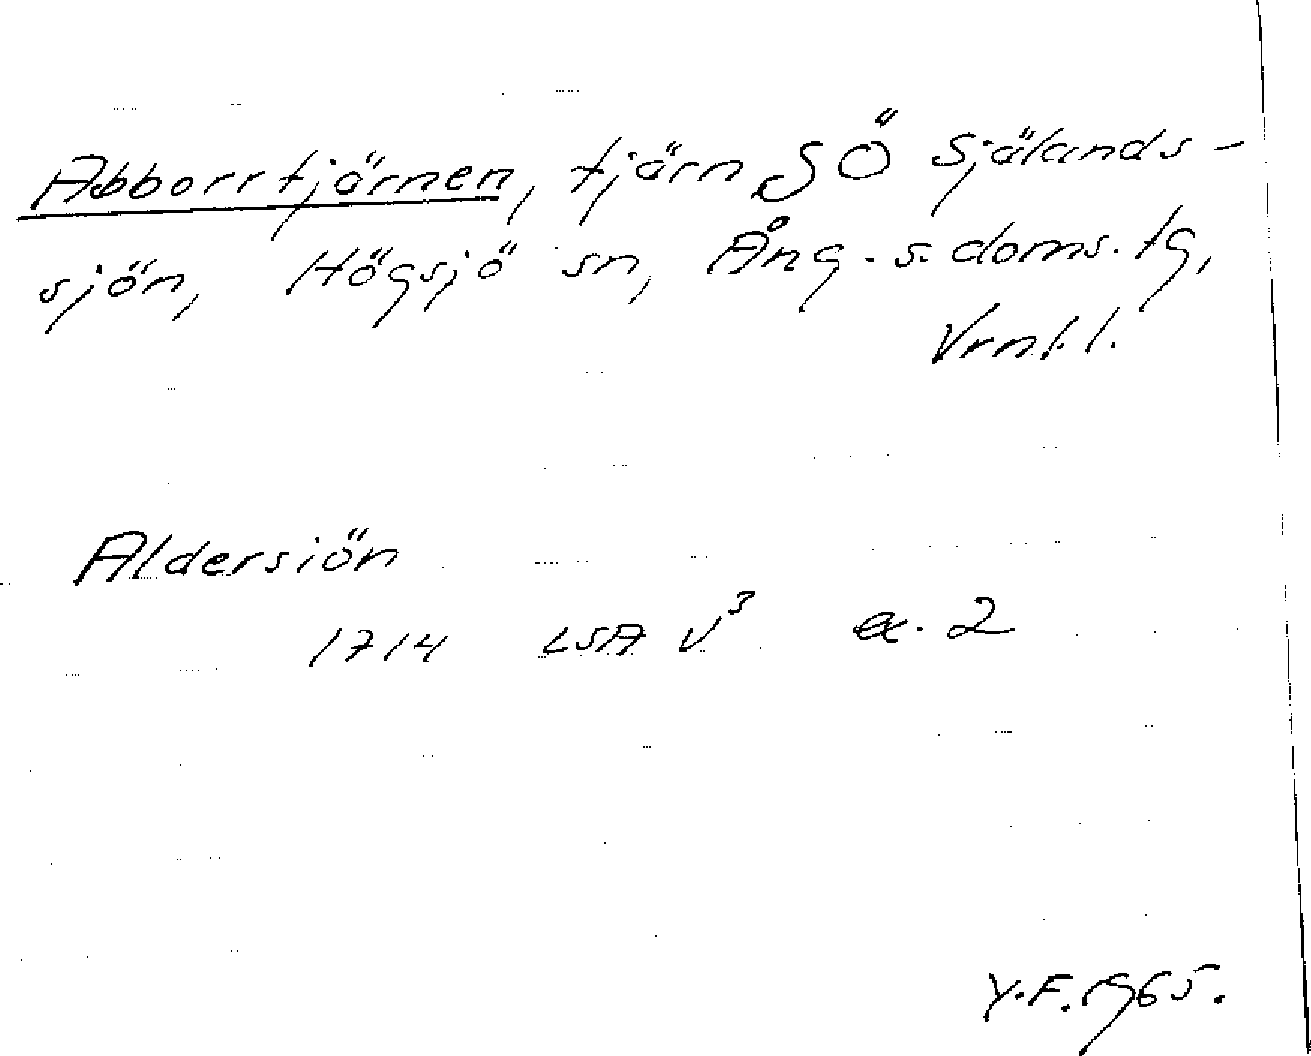 Abborrtjärnen, tjärn SÖ Själands-
sjön, Högsjö sn, Ång. s. doms. tg,
Vrnl.l.
Aldersiön
1714 LSA V³ ex. 2
Y.F. 1965.